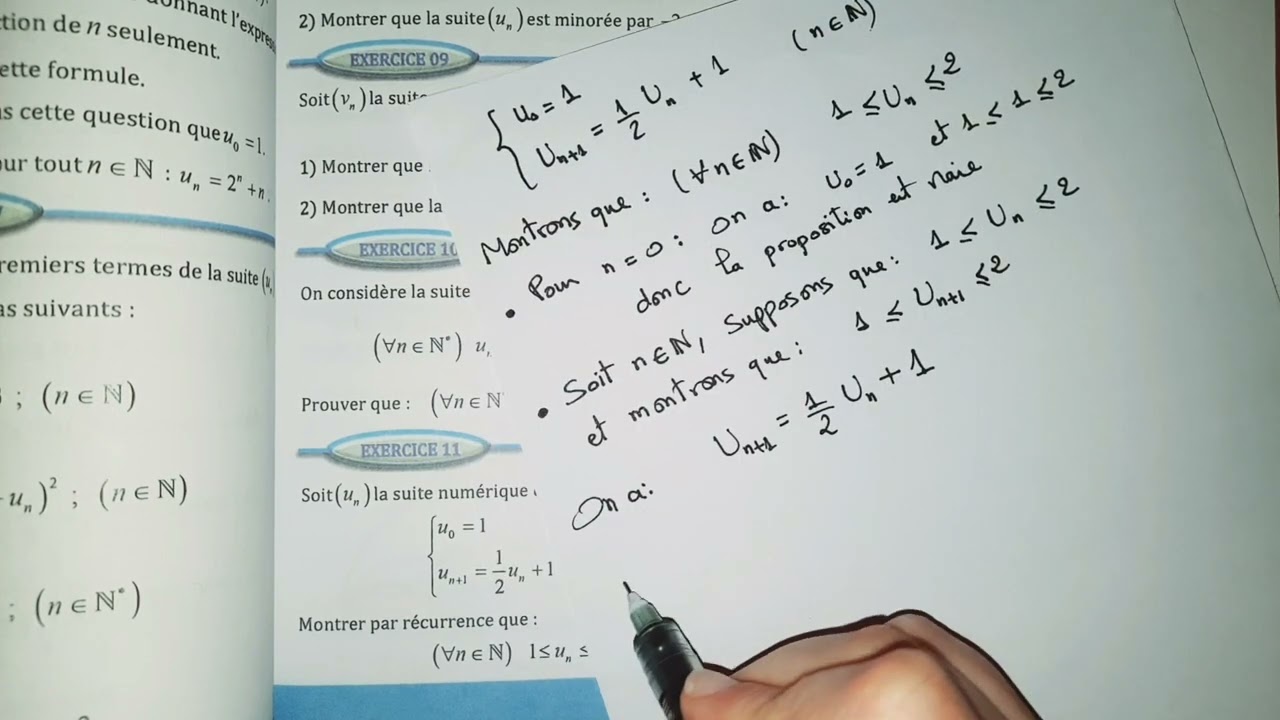 donnant l'expres
ction de n seulement.
ette formule.
s cette question que u₀ =1.
our tout n ∈ ℕ : uₙ = 2ⁿ + n.
remiers termes de la suite (u
as suivants :
; (n ∈ ℕ)
uₙ)² ; (n ∈ ℕ)
; (n ∈ ℕ*)
2) Montrer que la suite (uₙ) est minorée par
EXERCICE 09
Soit (vₙ) la suite
1) Montrer que
2) Montrer que la
EXERCICE 10
On considère la suite
(∀n ∈ ℕ*) u
Prouver que : (∀n ∈ ℕ
EXERCICE 11
Soit (uₙ) la suite numérique
{ u₀ = 1
uₙ₊₁ = 1/2 uₙ + 1
Montrer par récurrence que :
(∀n ∈ ℕ) 1 ≤ uₙ ≤
{ U₀ = 1
Uₙ₊₁ = 1/2 Uₙ + 1 (n ∈ ℕ)
Montrons que : (∀n ∈ ℕ) 1 ≤ Uₙ ≤ 2
• Pour n = 0 : on a : U₀ = 1 et 1 ≤ 1 ≤ 2
donc la proposition est vraie
• Soit n ∈ ℕ, supposons que : 1 ≤ Uₙ ≤ 2
et montrons que : 1 ≤ Uₙ₊₁ ≤ 2
Uₙ₊₁ = 1/2 Uₙ + 1
On a :